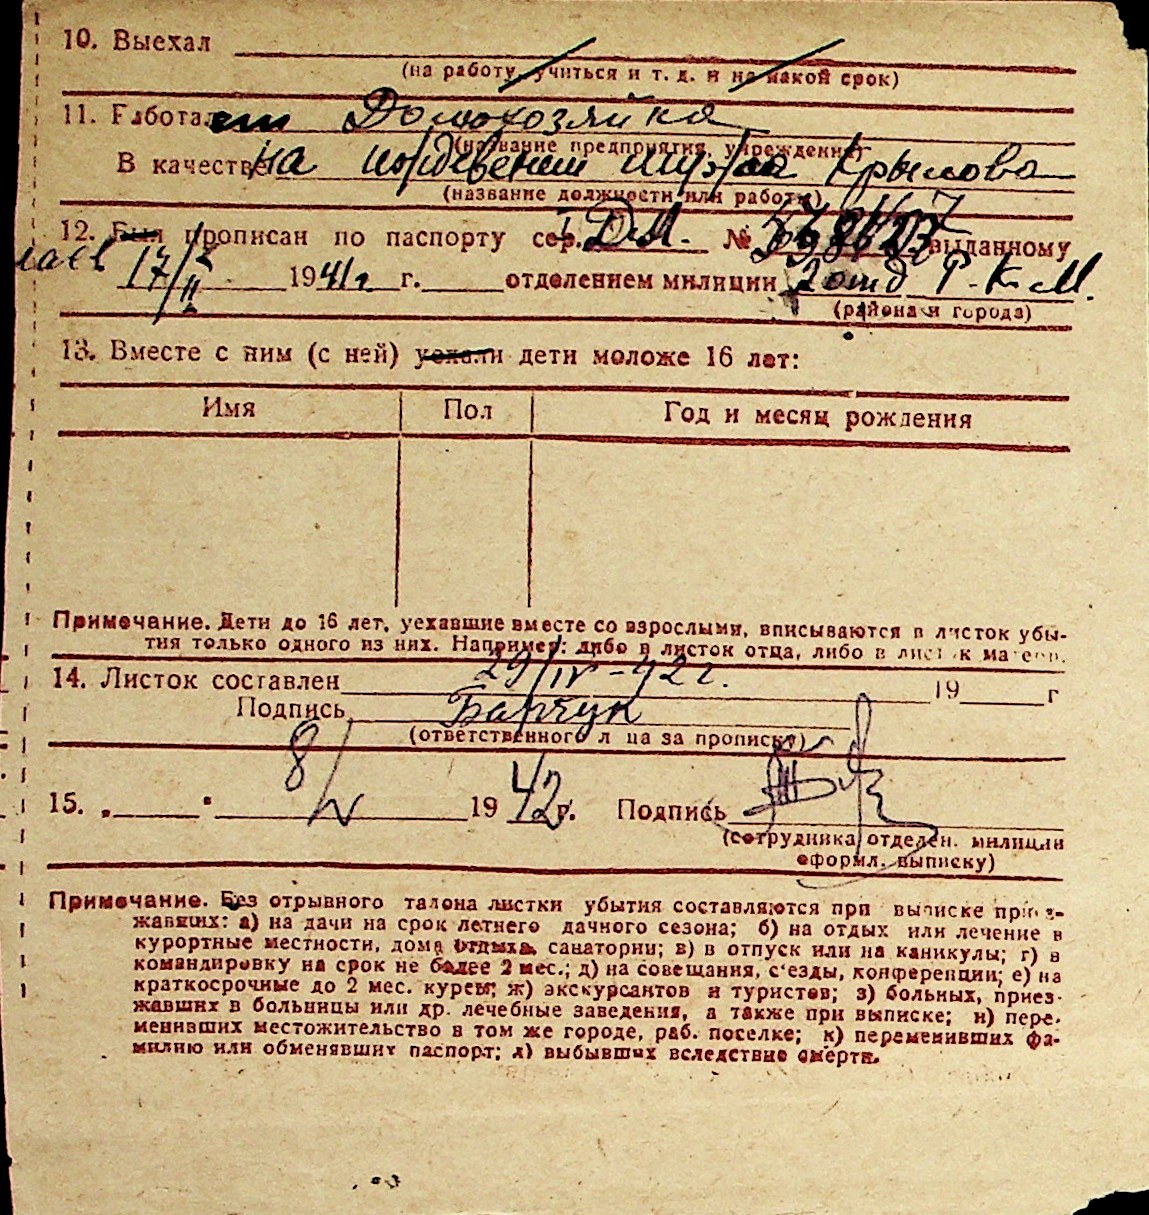 10. Выехал
(на работу, учиться и т. д. и на какой срок)
11. Работает Домохозяйка
(название предприятия, учреждения)
В качестве на иждевении мужа Крылова
(название должности или работы)
12. Был прописан по паспорту сер. I ДМ. № выданному
17/II 1941г г. отделением милиции 2 отд Р.К.М.
(района и города)
13. Вместе с ним (с ней) уехали дети моложе 16 лет:
Имя Пол Год и месяц рождения
Примечание. Дети до 16 лет, уехавшие вместе со взрослыми, вписываются в листок убы-
тия только одного из них. Например: либо в листок отца, либо в листок матери.
14. Листок составлен 29/IV-42 г. 19 г
Подпись Барчук
(ответственного лица за прописку)
15. „ " 8/V 1942г. Подпись
(сотрудника отделен. милиции
оформл. выписку)
Примечание. Без отрывного талона листки убытия составляются при выписке приез-
жавших: а) на дачи на срок летнего дачного сезона; б) на отдых или лечение в
курортные местности, дома отдыха, санатории; в) в отпуск или на каникулы; г) в
командировку на срок не более 2 мес.; д) на совещания, с'езды, конференции; е) на
краткосрочные до 2 мес. курсы; ж) экскурсантов и туристов; з) больных, приез-
жавших в больницы или др. лечебные заведения, а также при выписке; и) пере-
менивших местожительство в том же городе, раб. поселке; к) переменивших фа-
милию или обменявших паспорт; л) выбывших вследствие смерти.